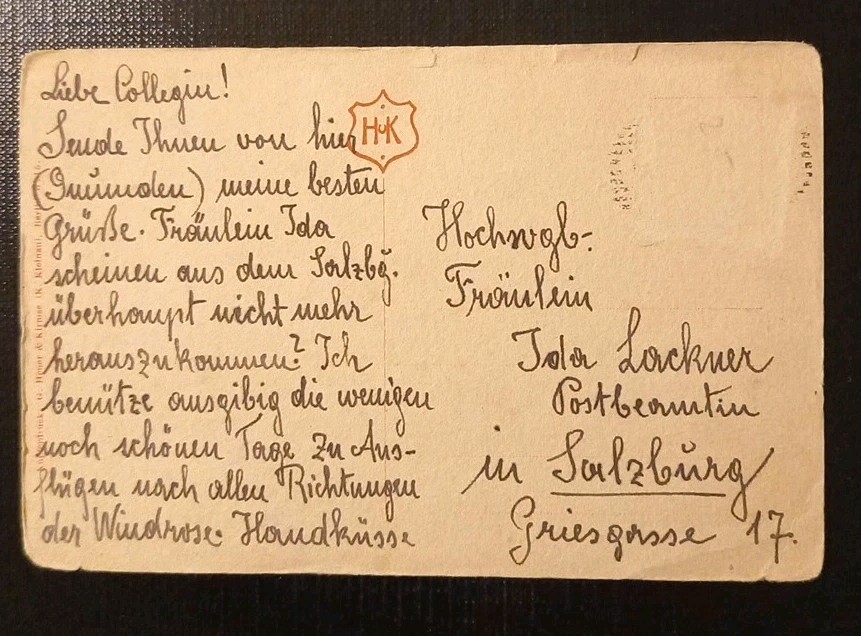 Liebe Collegin!
Sende Ihnen von hier
(Gmunden) meine besten
Grüße. Fräulein Ida
scheinen aus dem Salzbg.
überhaupt nicht mehr
herauszukommen? Ich
benütze ausgibig die wenigen
noch schönen Tage zu Aus-
flügen nach allen Richtungen
der Windrose. Handküsse
HuK
Hochwgb:
Fräulein
Ida Lackner
Postbeamtin
in Salzburg
Griesgasse 17.